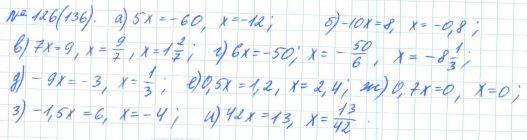 № 126(136). а) 5x = -60, x = -12; б) -10x = 8, x = -0,8;
в) 7x = 9, x = 9/7, x = 1 2/7; г) 6x = -50; x = -50/6, x = -8 1/3;
д) -9x = -3, x = 1/3; е) 0,5x = 1,2, x = 2,4; ж) 0,7x = 0, x = 0;
з) -1,5x = 6, x = -4; и) 42x = 13, x = 13/42.